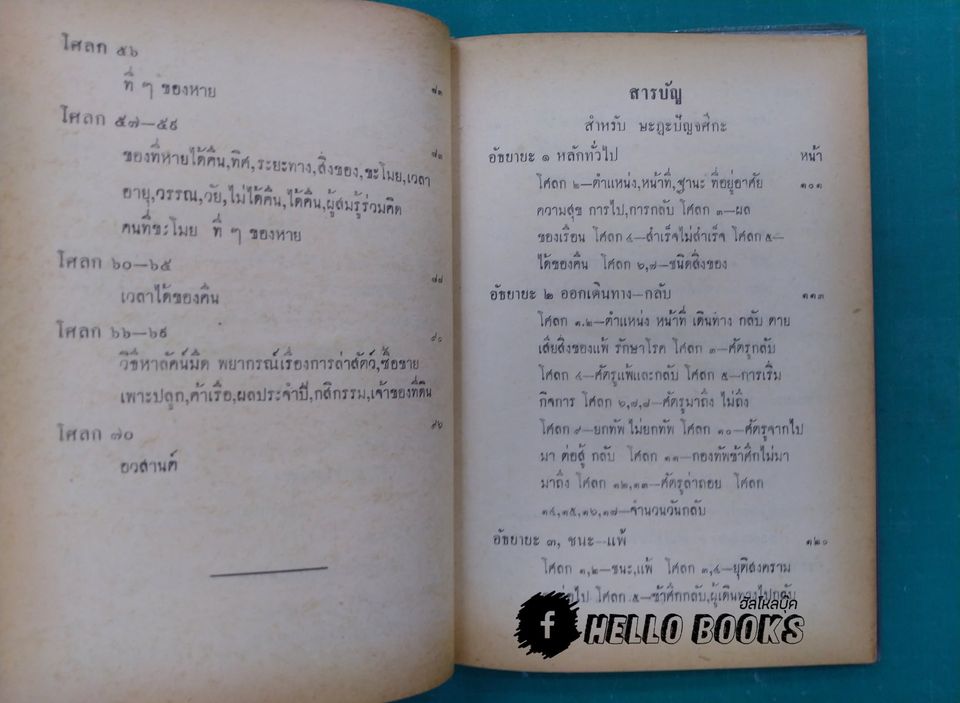 โศลก ๕๖
ที่ ๆ ของหาย ๘๒
โศลก ๕๗—๕๙ ๘๓
ของที่หายได้คืน,ทิศ,ระยะทาง,สิ่งของ,ขะโมย,เวลา
อายุ,วรรณ,วัย,ไม่ได้คืน,ได้คืน,ผู้สมรู้ร่วมคิด
คนที่ขะโมย ที่ ๆ ของหาย
โศลก ๖๐—๖๕ ๘๘
เวลาได้ของคืน
โศลก ๖๖—๖๙ ๙๐
วิธีหาลัคน์มิด พยากรณ์เรื่องการล่าสัตว์,ซื้อขาย
เพาะปลูก,ค้าเรือ,ผลประจำปี,กสิกรรม,เจ้าของที่ดิน
โศลก ๗๐ ๙๖
อวสานต์
สารบัญ
สำหรับ ษะฎะปัญจศิกะ
อัธยายะ ๑ หลักทั่วไป หน้า
โศลก ๒—ตำแหน่ง,หน้าที่,ฐานะ ที่อยู่อาศัย ๑๐๑
ความสุข การไป,การกลับ โศลก ๓—ผล
ของเรือน โศลก ๔—สำเร็จไม่สำเร็จ โศลก ๕—
ได้ของคืน โศลก ๖,๗—ชนิดสิ่งของ
อัธยายะ ๒ ออกเดินทาง—กลับ ๑๑๓
โศลก ๑.๒—ตำแหน่ง หน้าที่ เดินทาง กลับ ตาย
เสียสิ่งของแพ้ รักษาโรค โศลก ๓—ศัตรูกลับ
โศลก ๔—ศัตรูแพ้และกลับ โศลก ๕—การเริ่ม
กิจการ โศลก ๖,๗,๘—ศัตรูมาถึง ไม่ถึง
โศลก ๙—ยกทัพ ไม่ยกทัพ โศลก ๑๐—ศัตรูจากไป
มา ต่อสู้ กลับ โศลก ๑๑—กองทัพข้าศึกไม่มา
มาถึง โศลก ๑๒,๑๓—ศัตรูล่าถอย โศลก
๑๔,๑๕,๑๖,๑๗—จำนวนวันกลับ
อัธยายะ ๓, ชนะ—แพ้ ๑๒๐
โศลก ๑,๒—ชนะ,แพ้ โศลก ๓,๔—ยุติสงคราม
โศลก ๕—ข้าศึกกลับ,ผู้เดินทางไปกลับ
ฮัลโหลบุ๊ค
f HELLO BOOKS